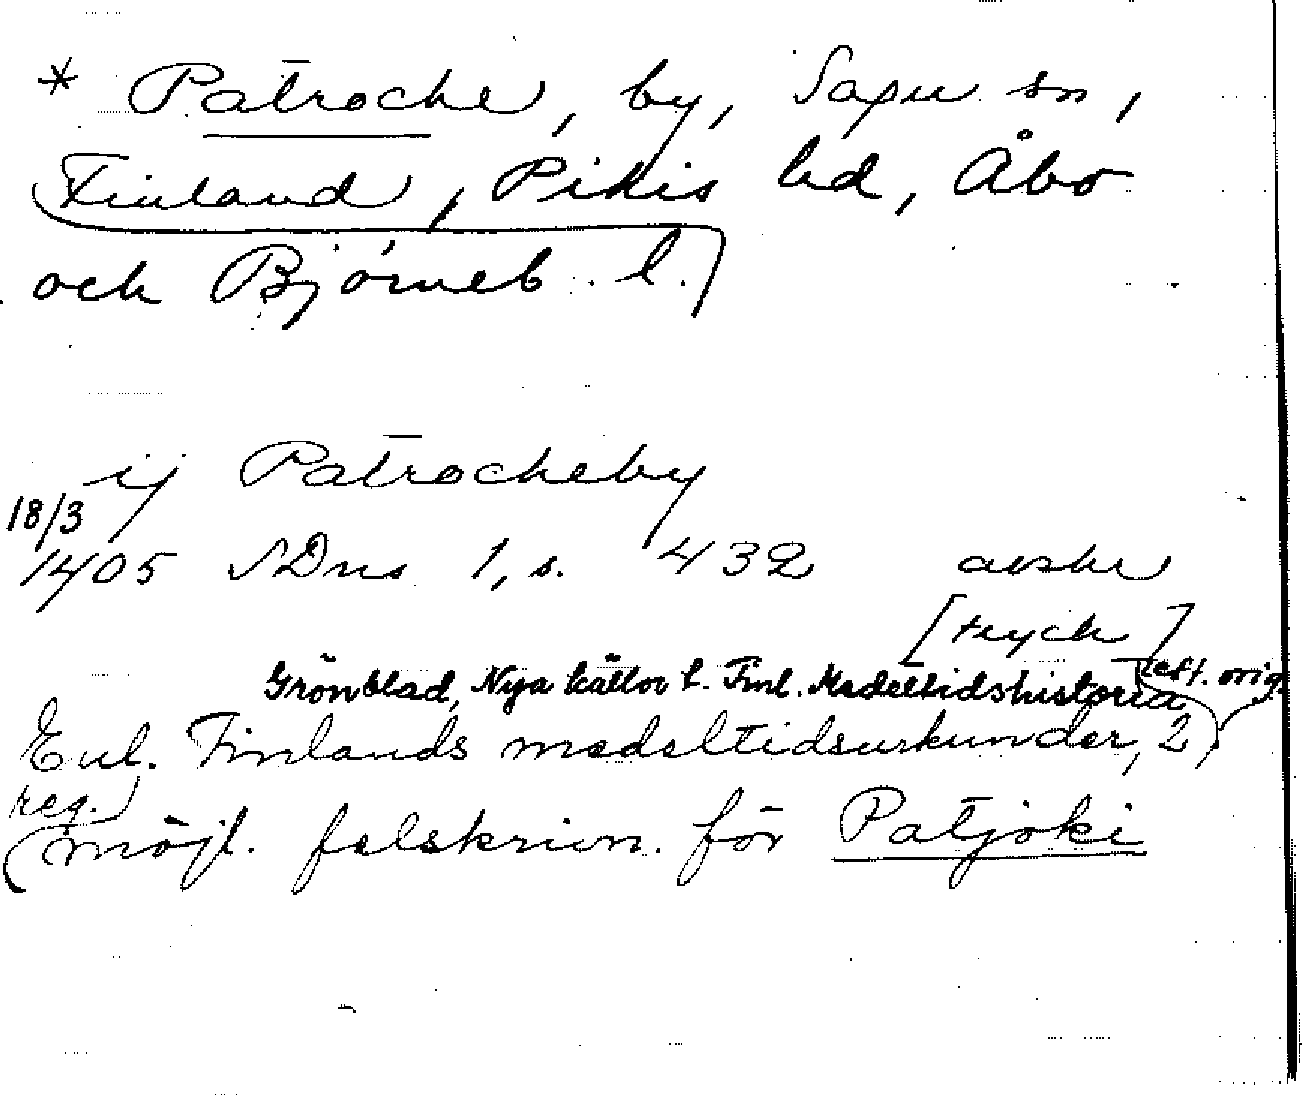 * Patroche, by, Sagu sn,
Finland, Pikis hd, Åbo
och Björneb. l.)
ij Patrocheby
18/3
1405 SDns 1, s. 432 avskr
[tryck]
Grönblad, Nya källor t. Finl. Medeltidshistoria (eft. orig.
Enl. Finlands medeltidsurkunder, 2)
reg.
(möjl. felskrivn. för Patjoki